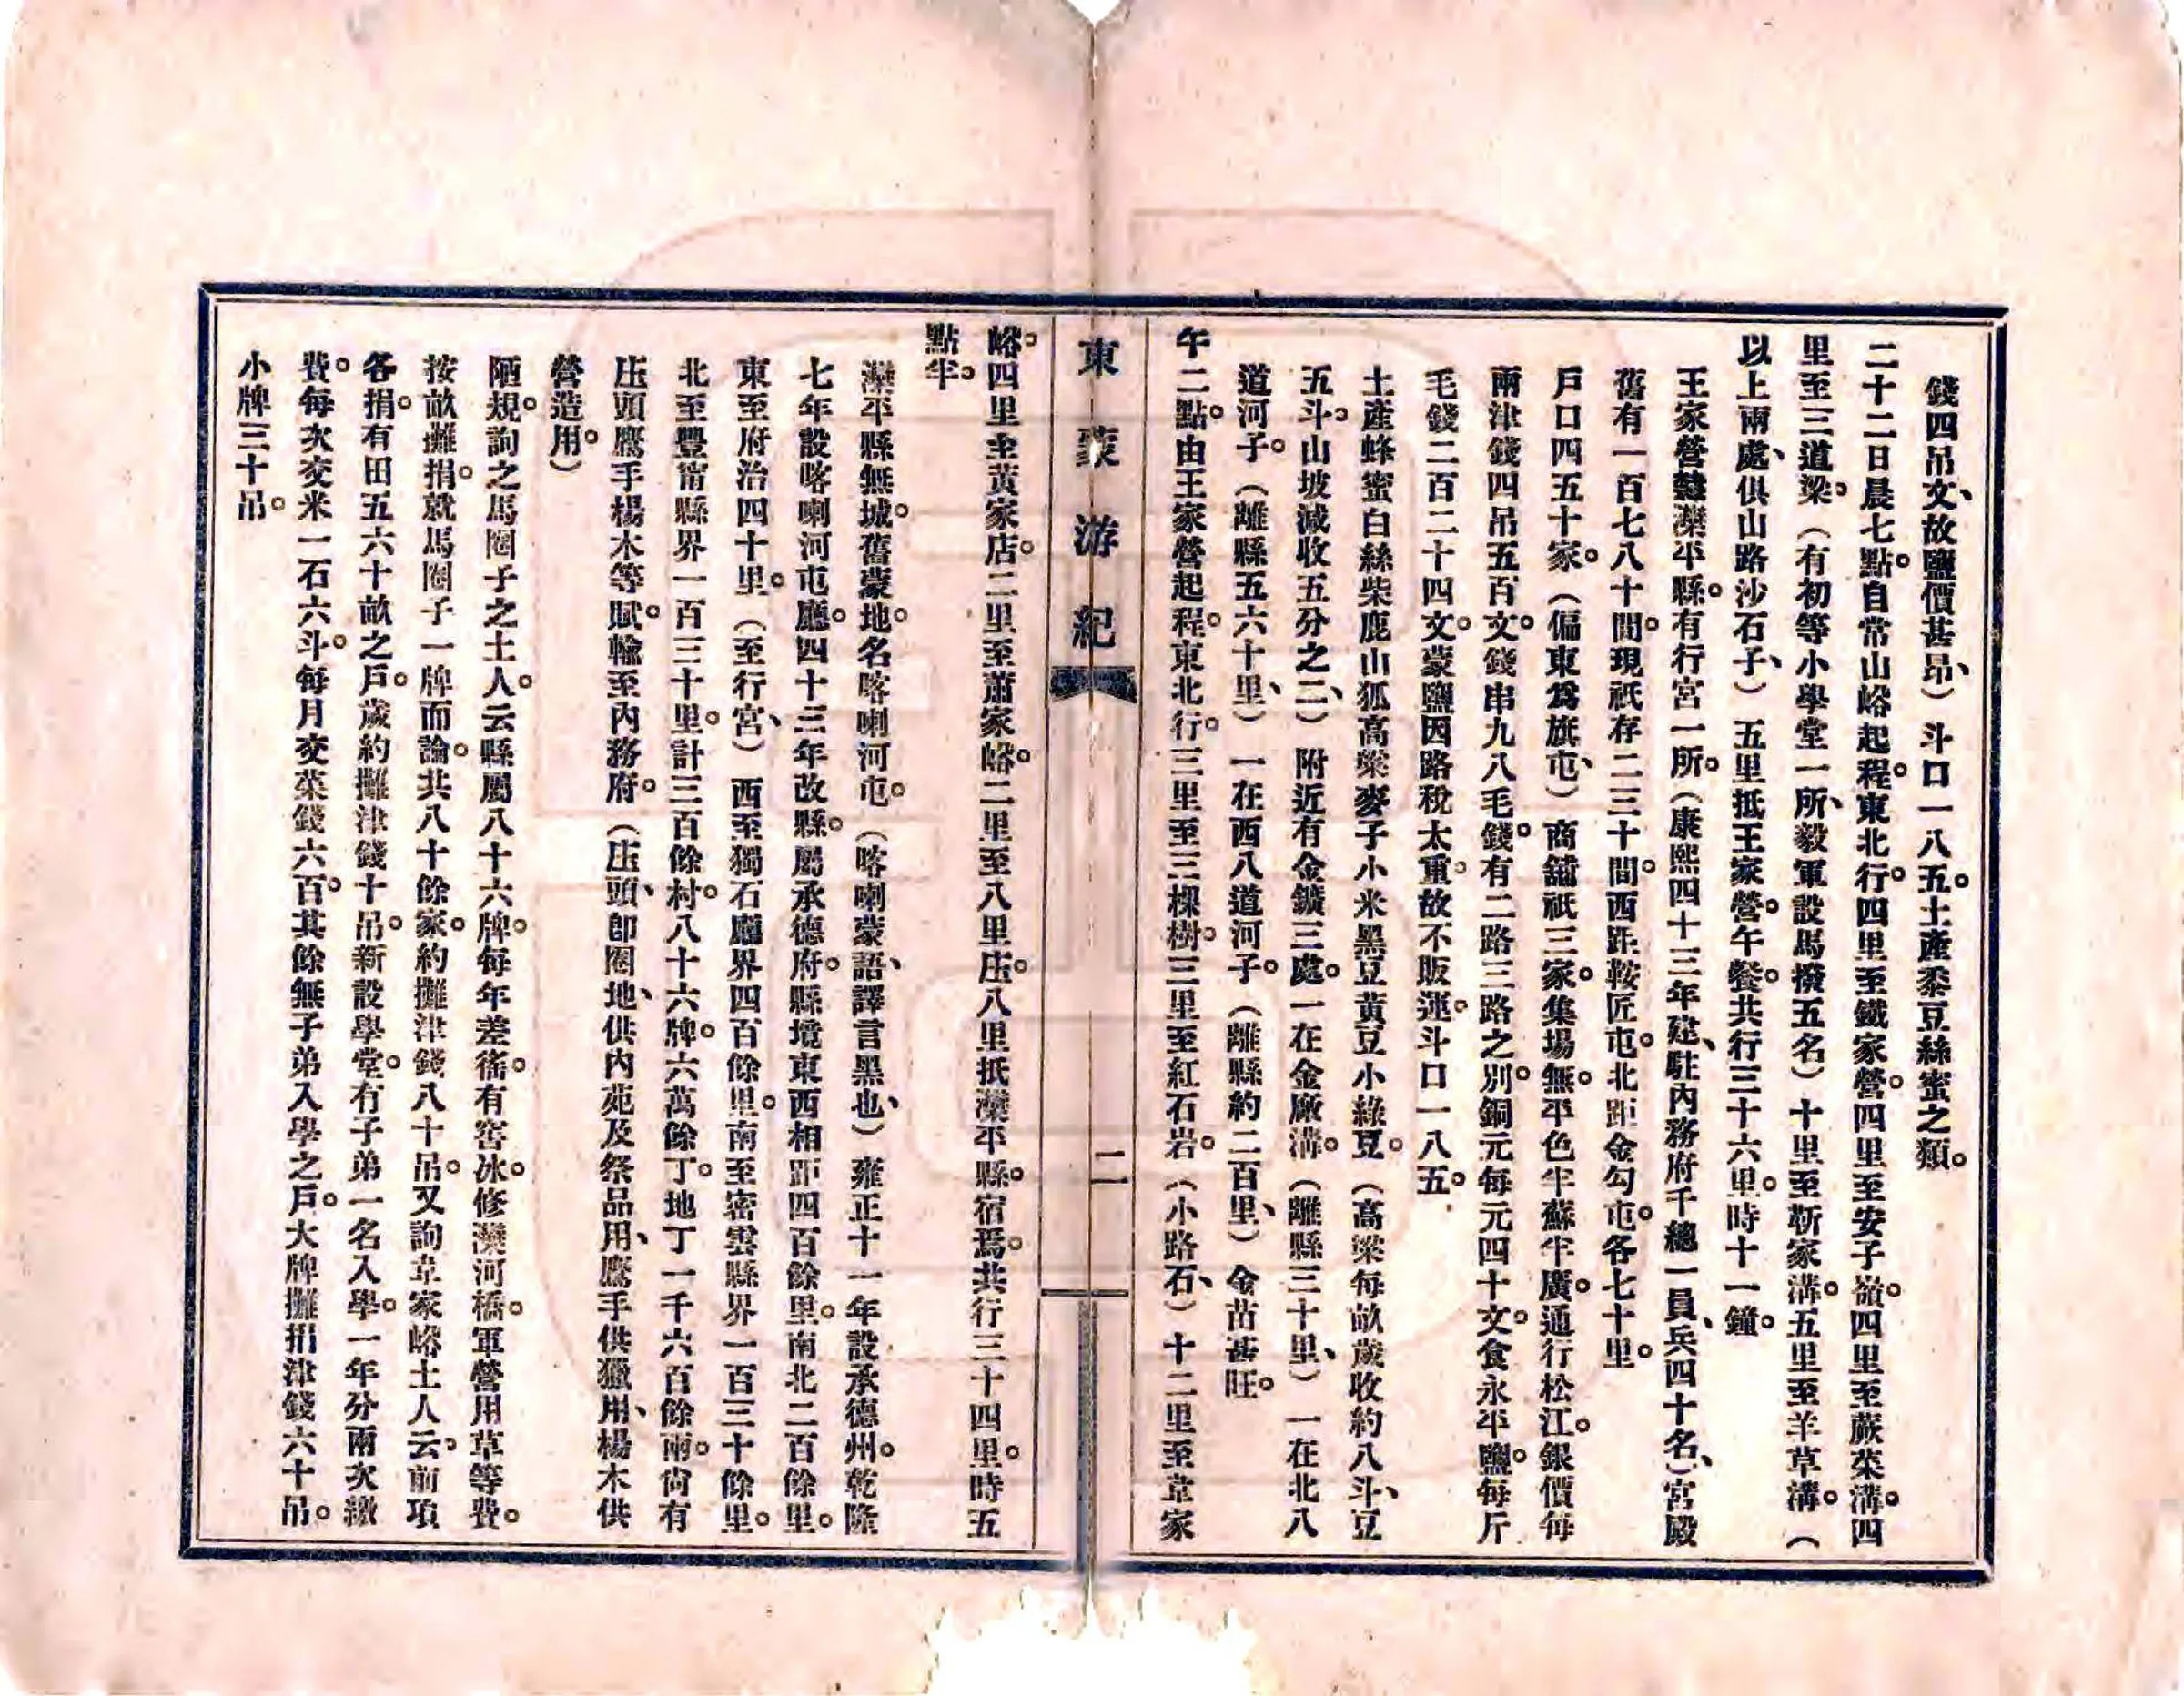 錢四吊文、故鹽價甚昂、）斗口一八五。土產黍豆絲蜜之類。
二十二日晨七點。自常山峪起程。東北行。四里至鐵家營。四里至安子嶺。四里至蕨菜溝。四
里至三道梁。（有初等小學堂一所、毅軍設馬撥五名）十里至靳家溝。五里至羊草溝。（
以上兩處、俱山路沙石子、）五里抵王家營。午餐。共行三十六里。時十一鐘。
王家營隸灤平縣。有行宮一所。（康熙四十三年建、駐內務府千總一員、兵四十名、）宮殿
舊有一百七八十間。現祇存二三十間。西距鞍匠屯。北距金勾屯。各七十里。
戶口四五十家。（偏東爲旗屯、）商舖祇三家。集場無。平色牛蘇牛廣。通行松江。銀價每
兩津錢四吊五百文。錢串九八毛錢。有二路三路之別。銅元每元四十文。食永平鹽。每斤
毛錢二百二十四文。蒙鹽因路稅太重。故不販運。斗口一八五。
土產蜂蜜白絲柴鹿山狐高粱麥子小米黑豆黃豆小綠豆。（高粱每畝歲收約八斗、豆
五斗。山坡減收五分之二、）附近有金鑛三處。一在金廠溝。（離縣三十里、）一在北八
道河子。（離縣五六十里、）一在西八道河子。（離縣約二百里、）金苗甚旺。
午二點。由王家營起程。東北行。三里至三棵樹。三里至紅石岩。（小路石、）十二里至韋家
東蒙游紀
二
峪。四里至黃家店。二里至蕭家峪。二里至八里庄。八里抵灤平縣。宿焉。共行三十四里。時五
點半。
灤平縣無城。舊蒙地。名喀喇河屯。（喀喇蒙語、譯言黑也、）雍正十一年設承德州。乾隆
七年設喀喇河屯廳。四十三年改縣。屬承德府。縣境東西相距四百餘里。南北二百餘里。
東至府治四十里。（至行宮、）西至獨石廳界四百餘里。南至密雲縣界一百三十餘里。
北至豐甯縣界一百三十里。計三百餘村。八十六牌。六萬餘丁。地丁一千六百餘兩。尚有
庄頭鷹手楊木等賦。輸至內務府。（庄頭、卽圈地、供內苑及祭品用、鷹手供獵用、楊木供
營造用。）
陋規。詢之馬圈子之土人。云縣屬八十六牌。每年差徭。有窖冰。修灤河橋。軍營用草等費。
按畝攤捐。就馬圈子一牌而論。共八十餘家。約攤津錢八十吊。又詢韋家峪土人云。前項
各捐。有田五六十畝之戶。歲約攤津錢十吊。新設學堂。有子弟一名入學。一年分兩次繳
費。每次交米一石六斗。每月交菜錢六百。其餘無子弟入學之戶。大牌攤捐津錢六十吊。
小牌三十吊。